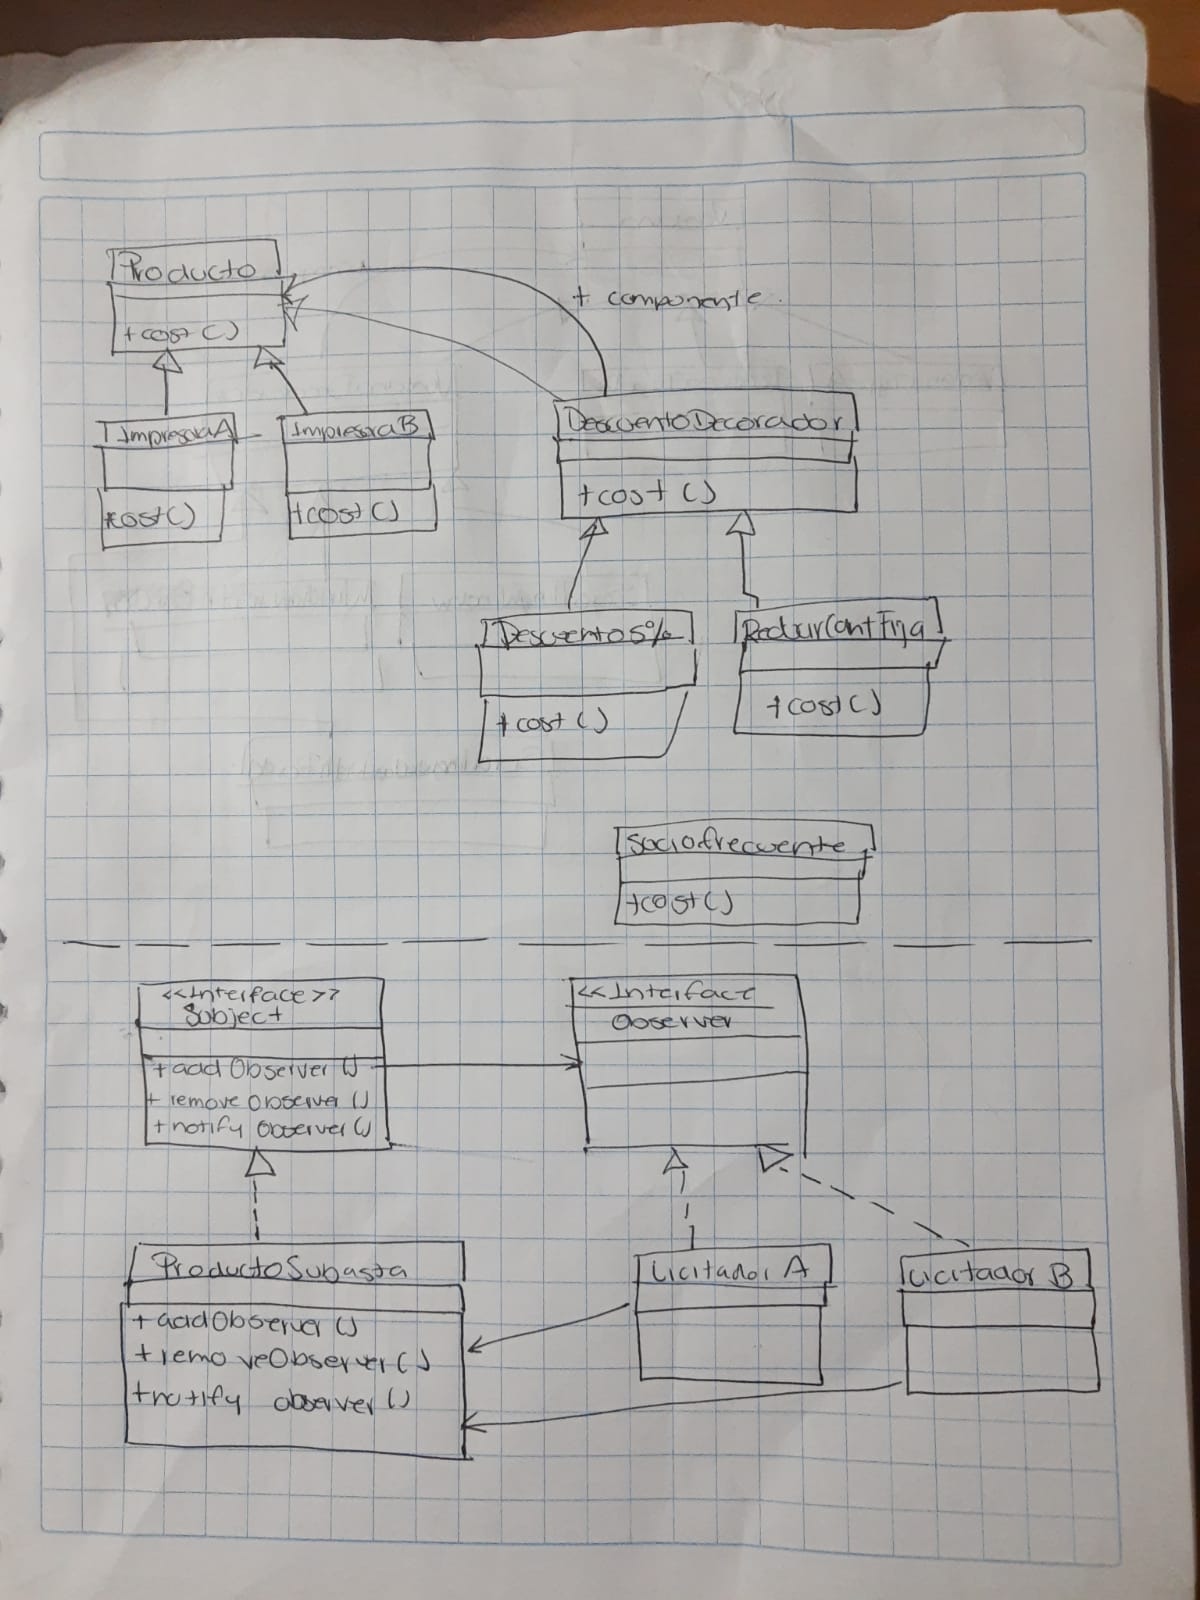 Producto
+ cost ()
+ componente
ImpresoraA
ImpresoraB
DescuentoDecorador
+cost()
+cost()
+cost ()
Descuento5%
ReducirCantFija
+cost ()
+cost()
Sociofrecuente
+cost()
<<Interface>>
Subject
+ add Observer ()
+ remove Observer ()
+ notify Observer ()
<<Interface
Observer
ProductoSubasta
+ addObserver ()
+ removeObserver ()
+notify observer ()
Licitador A
Licitador B